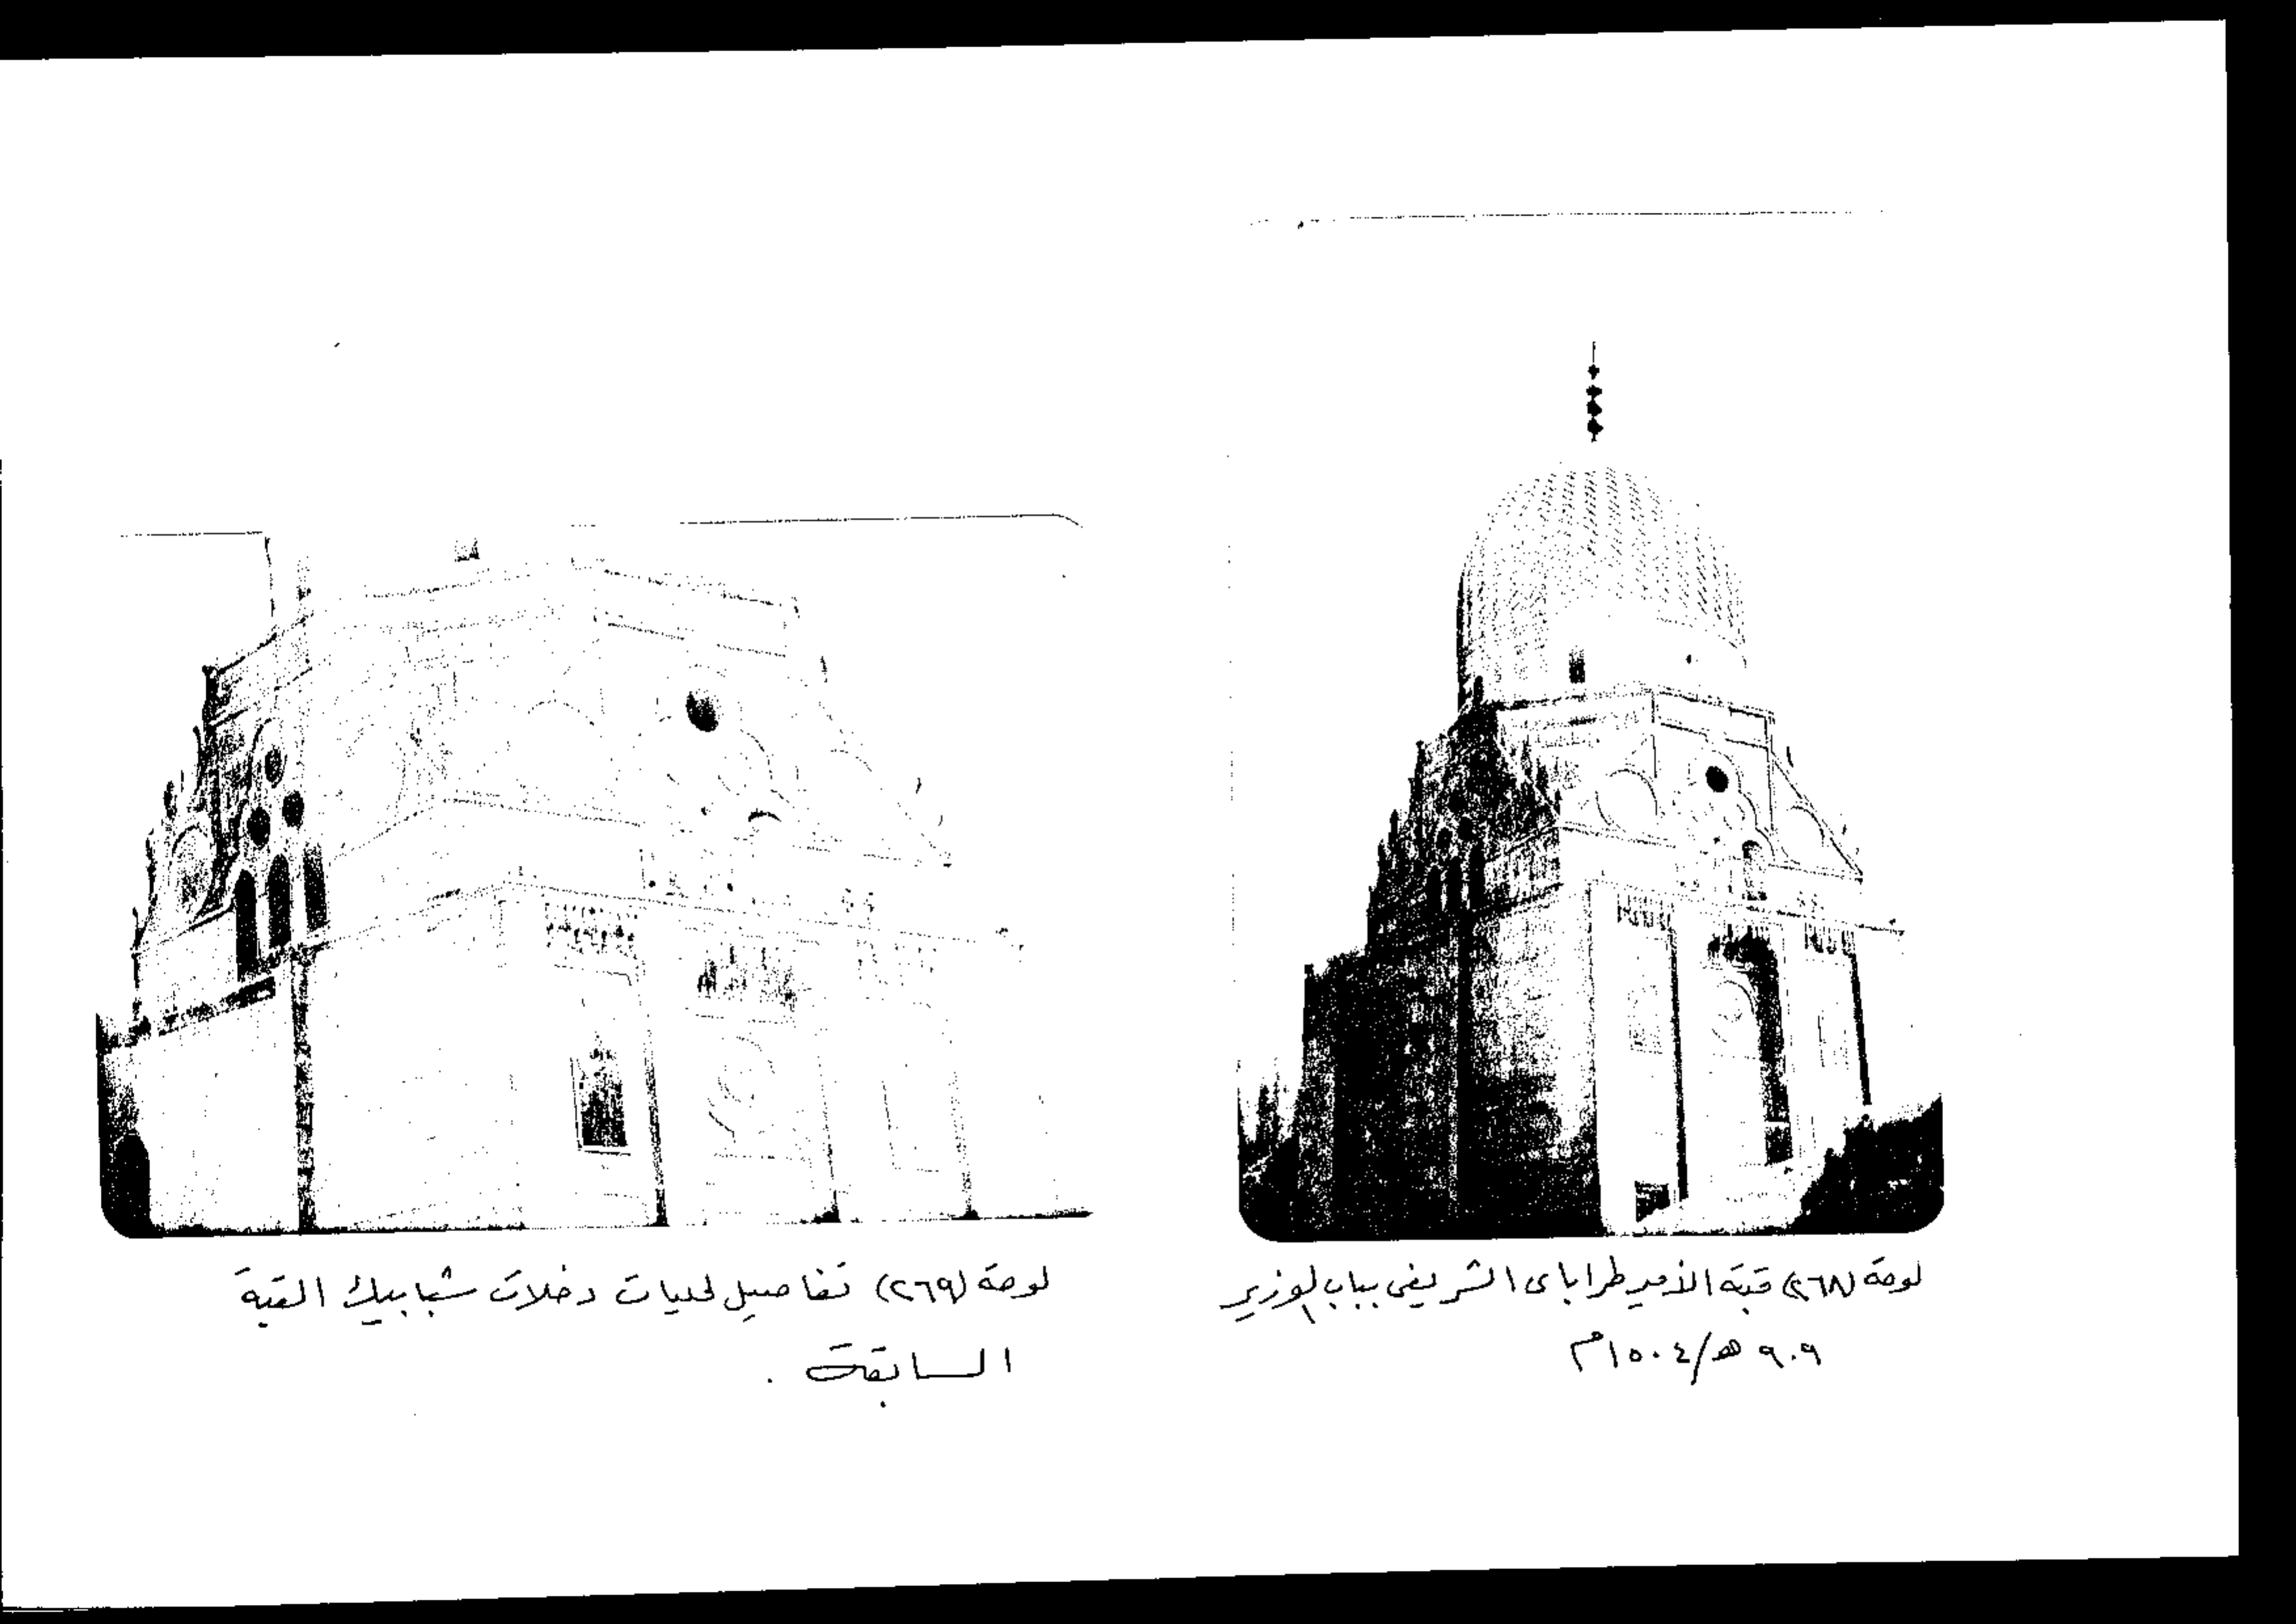 لوحة (٢٦٨) قبة الأمير طراباى الشريفى بباب الوزير
٩٠٩ هـ/١٥٠٤م
لوحة (٢٦٩) تفاصيل لحليات دخلات شبابيك القبة
السابقة .